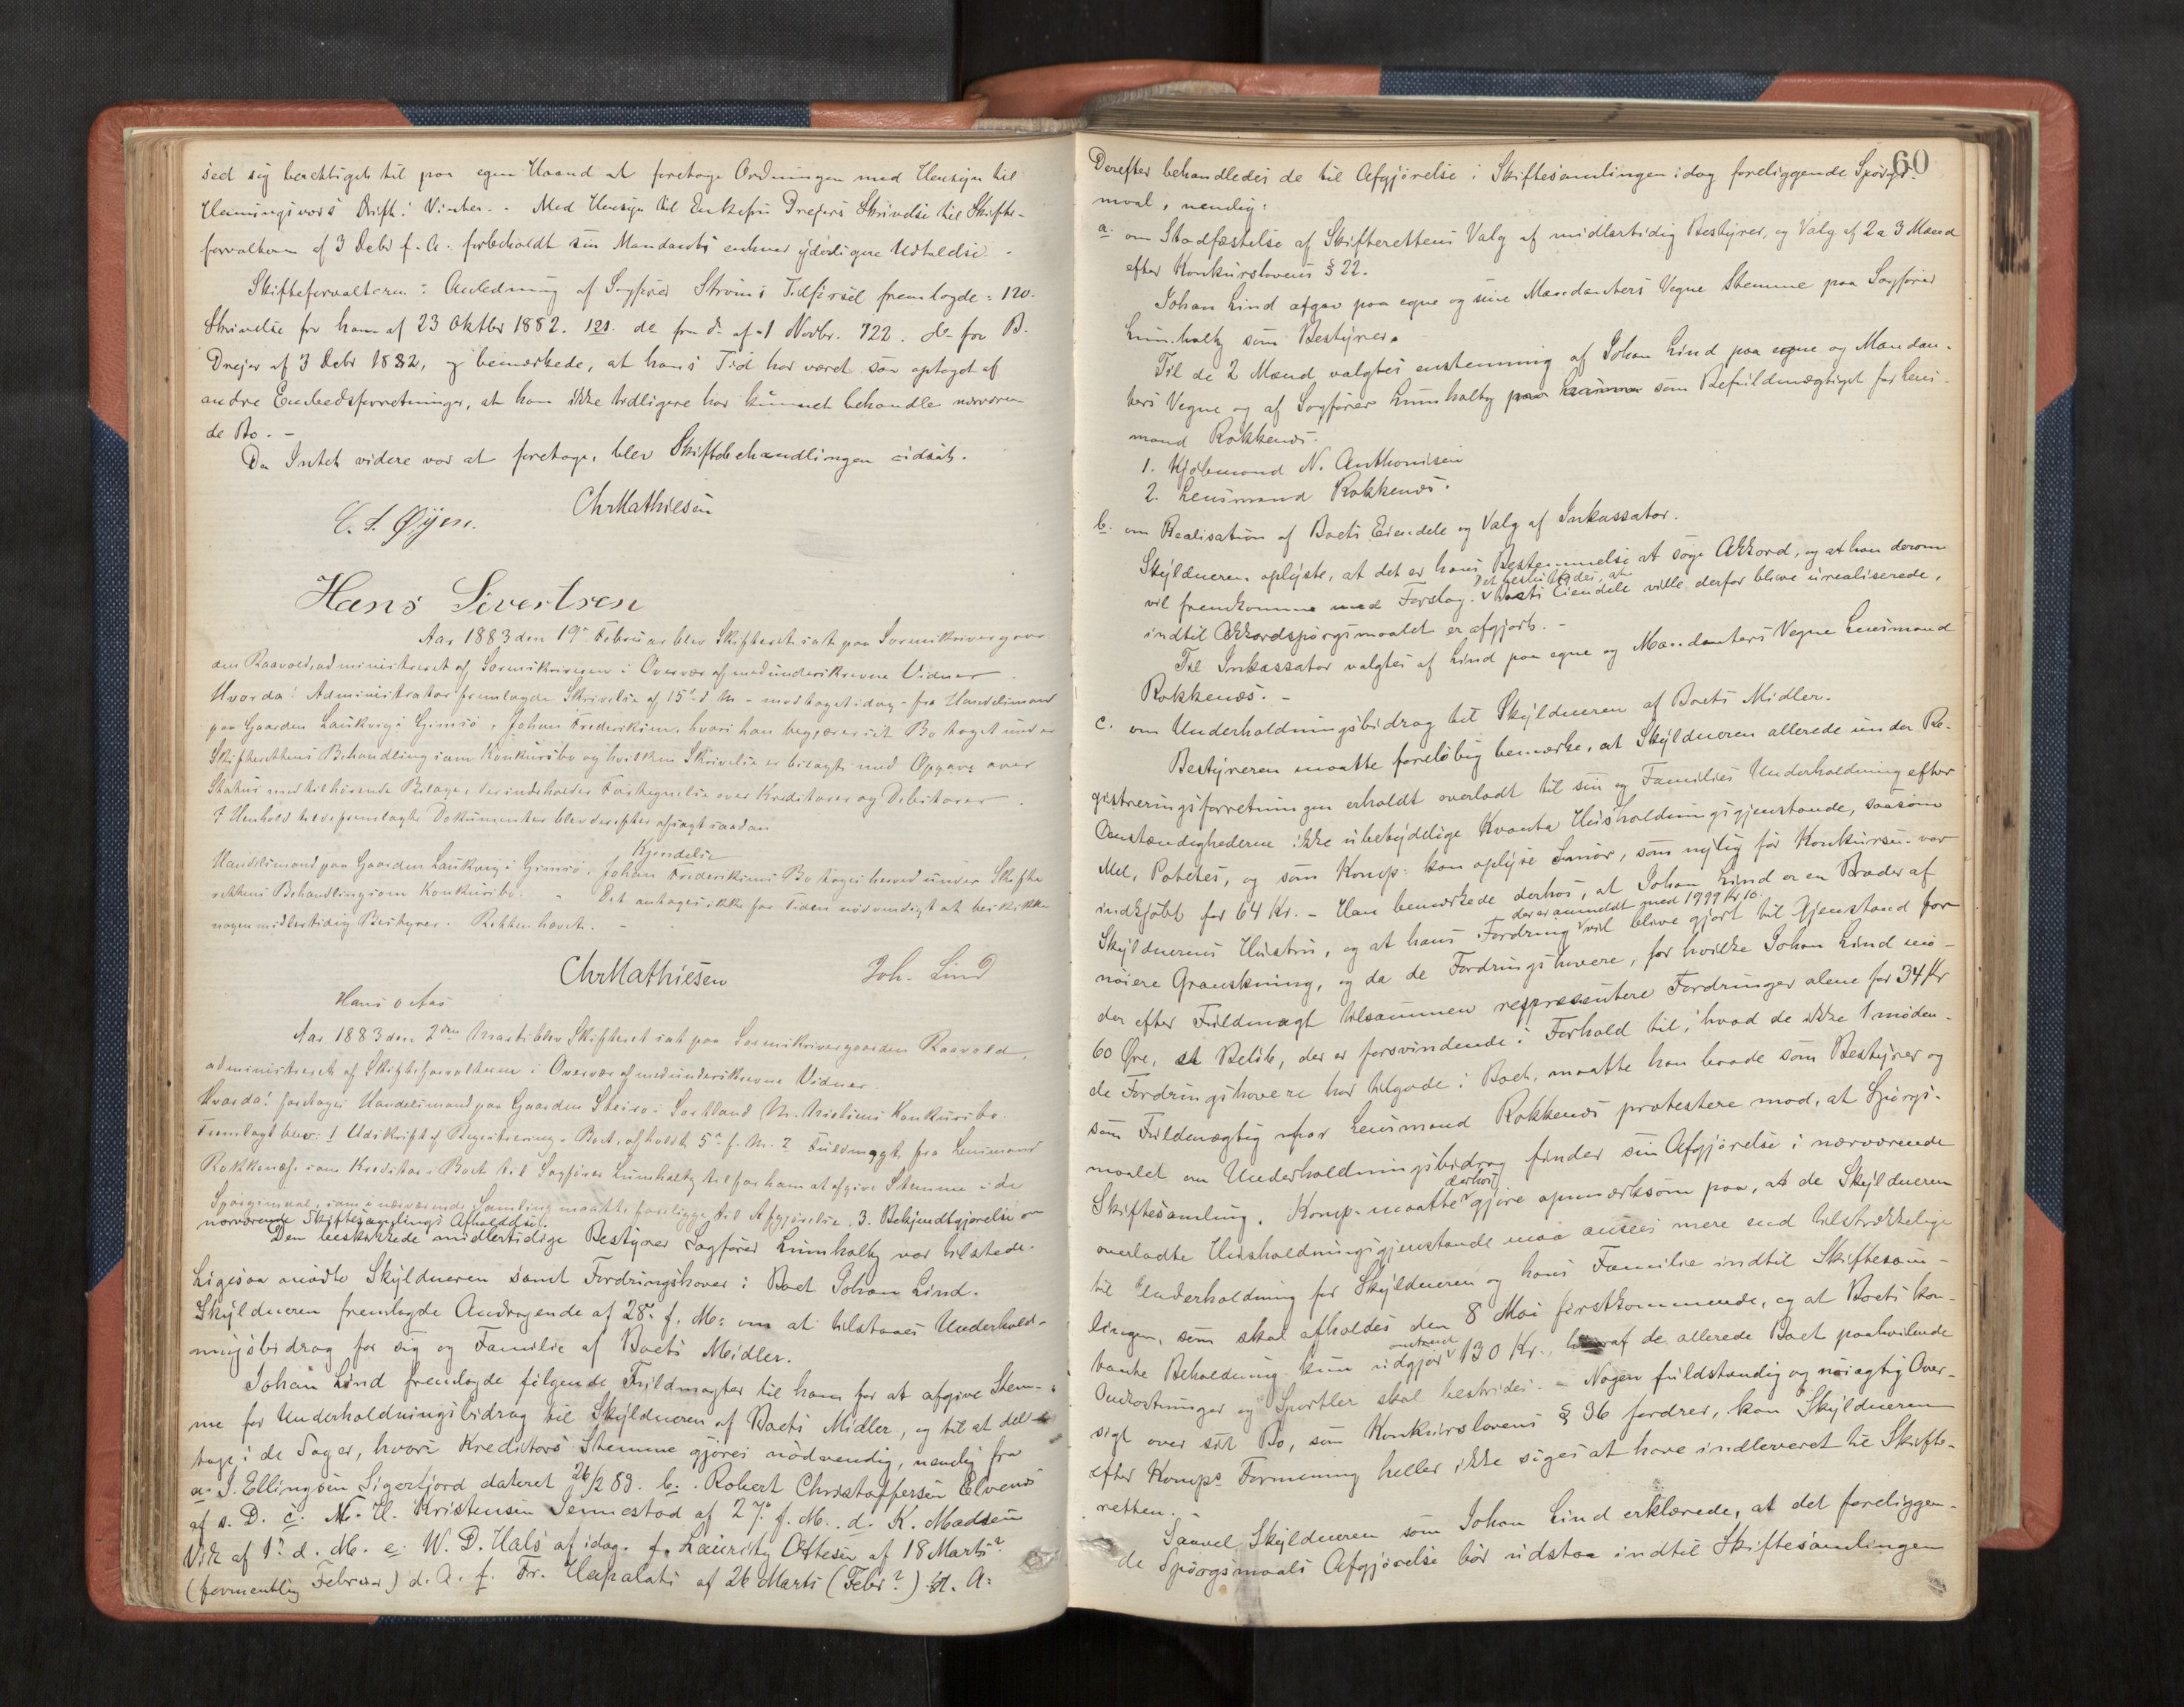 sed sig berettiget til paa egen Haand at foretage Ordningen med Hensyn til
Henningsvær's Drift i Vinter. - Med Hensyn til Enkefru Drejers Skrivelse til Skifte-
forvalteren af 3 Debr f. A. forbeholdt sin Mandants enhver yderligere Udtalelse. -
Skifteforvalteren i Anledning af Sagfører Strøms Tilførsel fremlagde: 120.
Skrivelse fra ham af 23 Oktbr 1882. 121. do fra do af 1 Novbr. 122. do fra B.
Drejer af 3 Debr 1882, og bemærkede, at hans Tid har været saa optaget af
andre Embedsforretninger, at han ikke tidligere har kunnet behandle nærværen-
de Bo. -
Da Intet videre var at foretage, blev Skiftebehandlingen udsat.
ChrMathiesen
E. S. Øyen.
Hans Sivertsen
Aar 1883 den 19de Februar blev Skifteret sat paa Sorenskrivergaar-
den Raavold, administreret af Sorenskriveren i Overvær af medunderskrevne Vidner.
Hvorda! Administrator fremlagde Skrivelse af 15de d. M. - modtaget idag - fra Handelsmand
paa Gaarden Laukvig i Gimsø, Johan Frederiksen, hvori han begjærer sit Bo taget under
Skifterettens Behandling som Konkursbo og hvilken Skrivelse er bilagt med Opgave over
Status med tilhørende Bilage, der indeholder Fortegnelse over Kreditorer og Debitorer.
I Henhold til de fremlagte Dokumenter blev derefter afsagt saadan
Kjendelse
Handelsmand paa Gaarden Laukvig i Gimsø, Johan Frederiksens Bo tages herved under Skifte-
rettens Behandling som Konkursbo. - Det antages ikke for Tiden nødvendigt at beskikke
nogen midlertidig Bestyrer. Retten hævet. -
ChrMathiesen Joh. Lind
Hans O Aas
Aar 1883 den 2den Marts blev Skifteret sat paa Sorenskrivergaarden Raavold,
administreret af Skifteforvalteren i Overvær af medunderskrevne Vidner.
Hvorda! foretages Handelsmand paa Gaarden Steiro i Sortland M. Nielsens Konkursbo.
Fremlagt blev: 1 Udskrift af Registrering i Boet, afholdt 5te f. M. 2 Fuldmagt fra Lensmand
Rokkenæs som Kreditor i Boet til Sagfører Lumholtz til for ham at afgive Stemme i de
Spørgsmaal, som i nærværende Samling maatte foreligge til Afgjørelse. 3. Bekjendtgjørelse om
nærværende Skiftesamlings Afholdelse.
Den beskikkede midlertidige Bestyrer Sagfører Lumholtz var tilstede.
Ligesaa mødte Skyldneren samt Fordringshaver i Boet Johan Lind.
Skyldneren fremlagde Andragende af 28de f. M: om at tilstaaes Underhold-
ningsbidrag for sig og Familie af Boets Midler.
Johan Lind fremlagde følgende Fuldmagter til ham for at afgive Stem-
me for Underholdningsbidrag til Skyldneren af Boets Midler, og til at del-
tage i de Sager, hvori Kreditors Stemme gjøres nødvendig, nemlig fra
a. J. Ellingsen Sigerfjord dateret 26/2 83. b. Robert Christoffersen Elvenes
af s. D. c. N. H. Kristensen Jennestad af 27de f. M. d. K. Madsen
Vik af 1ste d. M. e. W. D. Hals af idag. f. Lauritz Ottesen af 18 Marts
(formentlig Februar) d. A. f. Fr. Hapalahti af 26 Marts (Febr?) d. A:
60
Derefter behandledes de til Afgjørelse i Skiftesamlingen idag foreliggende Spørgs-
maal, nemlig:
a. om Stadfæstelse af Skifterettens Valg af midlertidig Bestyrer, og Valg af 2 a 3 Mænd
efter Konkurslovens § 22.
Johan Lind afgav paa egne og sine Mandanters Vegne Stemme paa Sagfører
Lumholtz som Bestyrer.
Til de 2 Mænd valgtes enstemmig af Johan Lind paa egne og Mandan-
ters Vegne og af Sagfører Lumholtz som Befuldmægtiget for Lens-
mand Rokkenæs.
1. Kjøbmand N. Anthonisen
2. Lensmand Rokkenæs.
b. om Realisation af Boets Eiendele og Valg af Inkassator.
Skyldneren oplyste, at det er hans Bestemmelse at søge Akkord, og at han derom
Det besluttedes, at
vil fremkomme med Forslag. Boets Eiendele ville derfor blive urealiserede,
indtil Akkordspørgsmaalet er afgjort. -
Til Inkassator valgtes af Lind paa egne og Mandanters Vegne Lensmand
Rokkenæs. -
c. om Underholdningsbidrag til Skyldneren af Boets Midler.
Bestyreren maatte foreløbig bemærke, at Skyldneren allerede under Re-
gistreringsforretningen erholdt overladt til sin og Families Underholdning efter
Omstændighederne ikke ubetydelige Kvanta Husholdningsgjenstande, saasom
Mel, Poteter, og som Komp: kan oplyse Smør, som nylig før Konkursen var
indkjøbt for 64 Kr. - Han bemærkede derhos, at Johan Lind er en Broder af
der er anmeldt med 1999 Kr 10.
Skyldnerens Hustru, og at hans Fordring vil blive gjort til Gjenstand for
nøiere Granskning, og da de Fordringshavere, for hvilke Johan Lind mø-
der efter Fuldmagt tilsammen repræsentere Fordringer alene for 34 Kr
60 Øre, et Beløb, der er forsvindende i Forhold til, hvad de ikke møden-
de Fordringshavere har tilgode i Boet, maatte han baade som Bestyrer og
som Fuldmægtig for Lensmand Rokkenæs protestere mod, at Spørgs-
maalet om Underholdningsbidrag finder sin Afgjørelse i nærværende
derhos
Skiftesamling. Komp. maatte gjøre opmærksom paa, at de Skyldneren
overladte Husholdningsgjenstande maa ansees mere end tilstrækkelige
til Underholdning for Skyldneren og hans Familie indtil Skiftesam-
lingen, som skal afholdes den 8 Mai førstkommende, og at Boets kon-
omtrent
tante Beholdning kun udgjør 130 Kr., hvoraf de allerede Boet paahvilende
Omkostninger og Sportler skal bestrides. - Nogen fuldstændig og nøiagtig Over-
sigt over sit Bo, som Konkurslovens § 36 fordrer, kan Skyldneren
efter Komps Formening heller ikke siges at have indleveret til Skifte-
retten. -
Saavel Skyldneren som Johan Lind erklærede, at det foreliggen-
de Spørgsmaals Afgjørelse bør udstaa indtil Skiftesamlingen